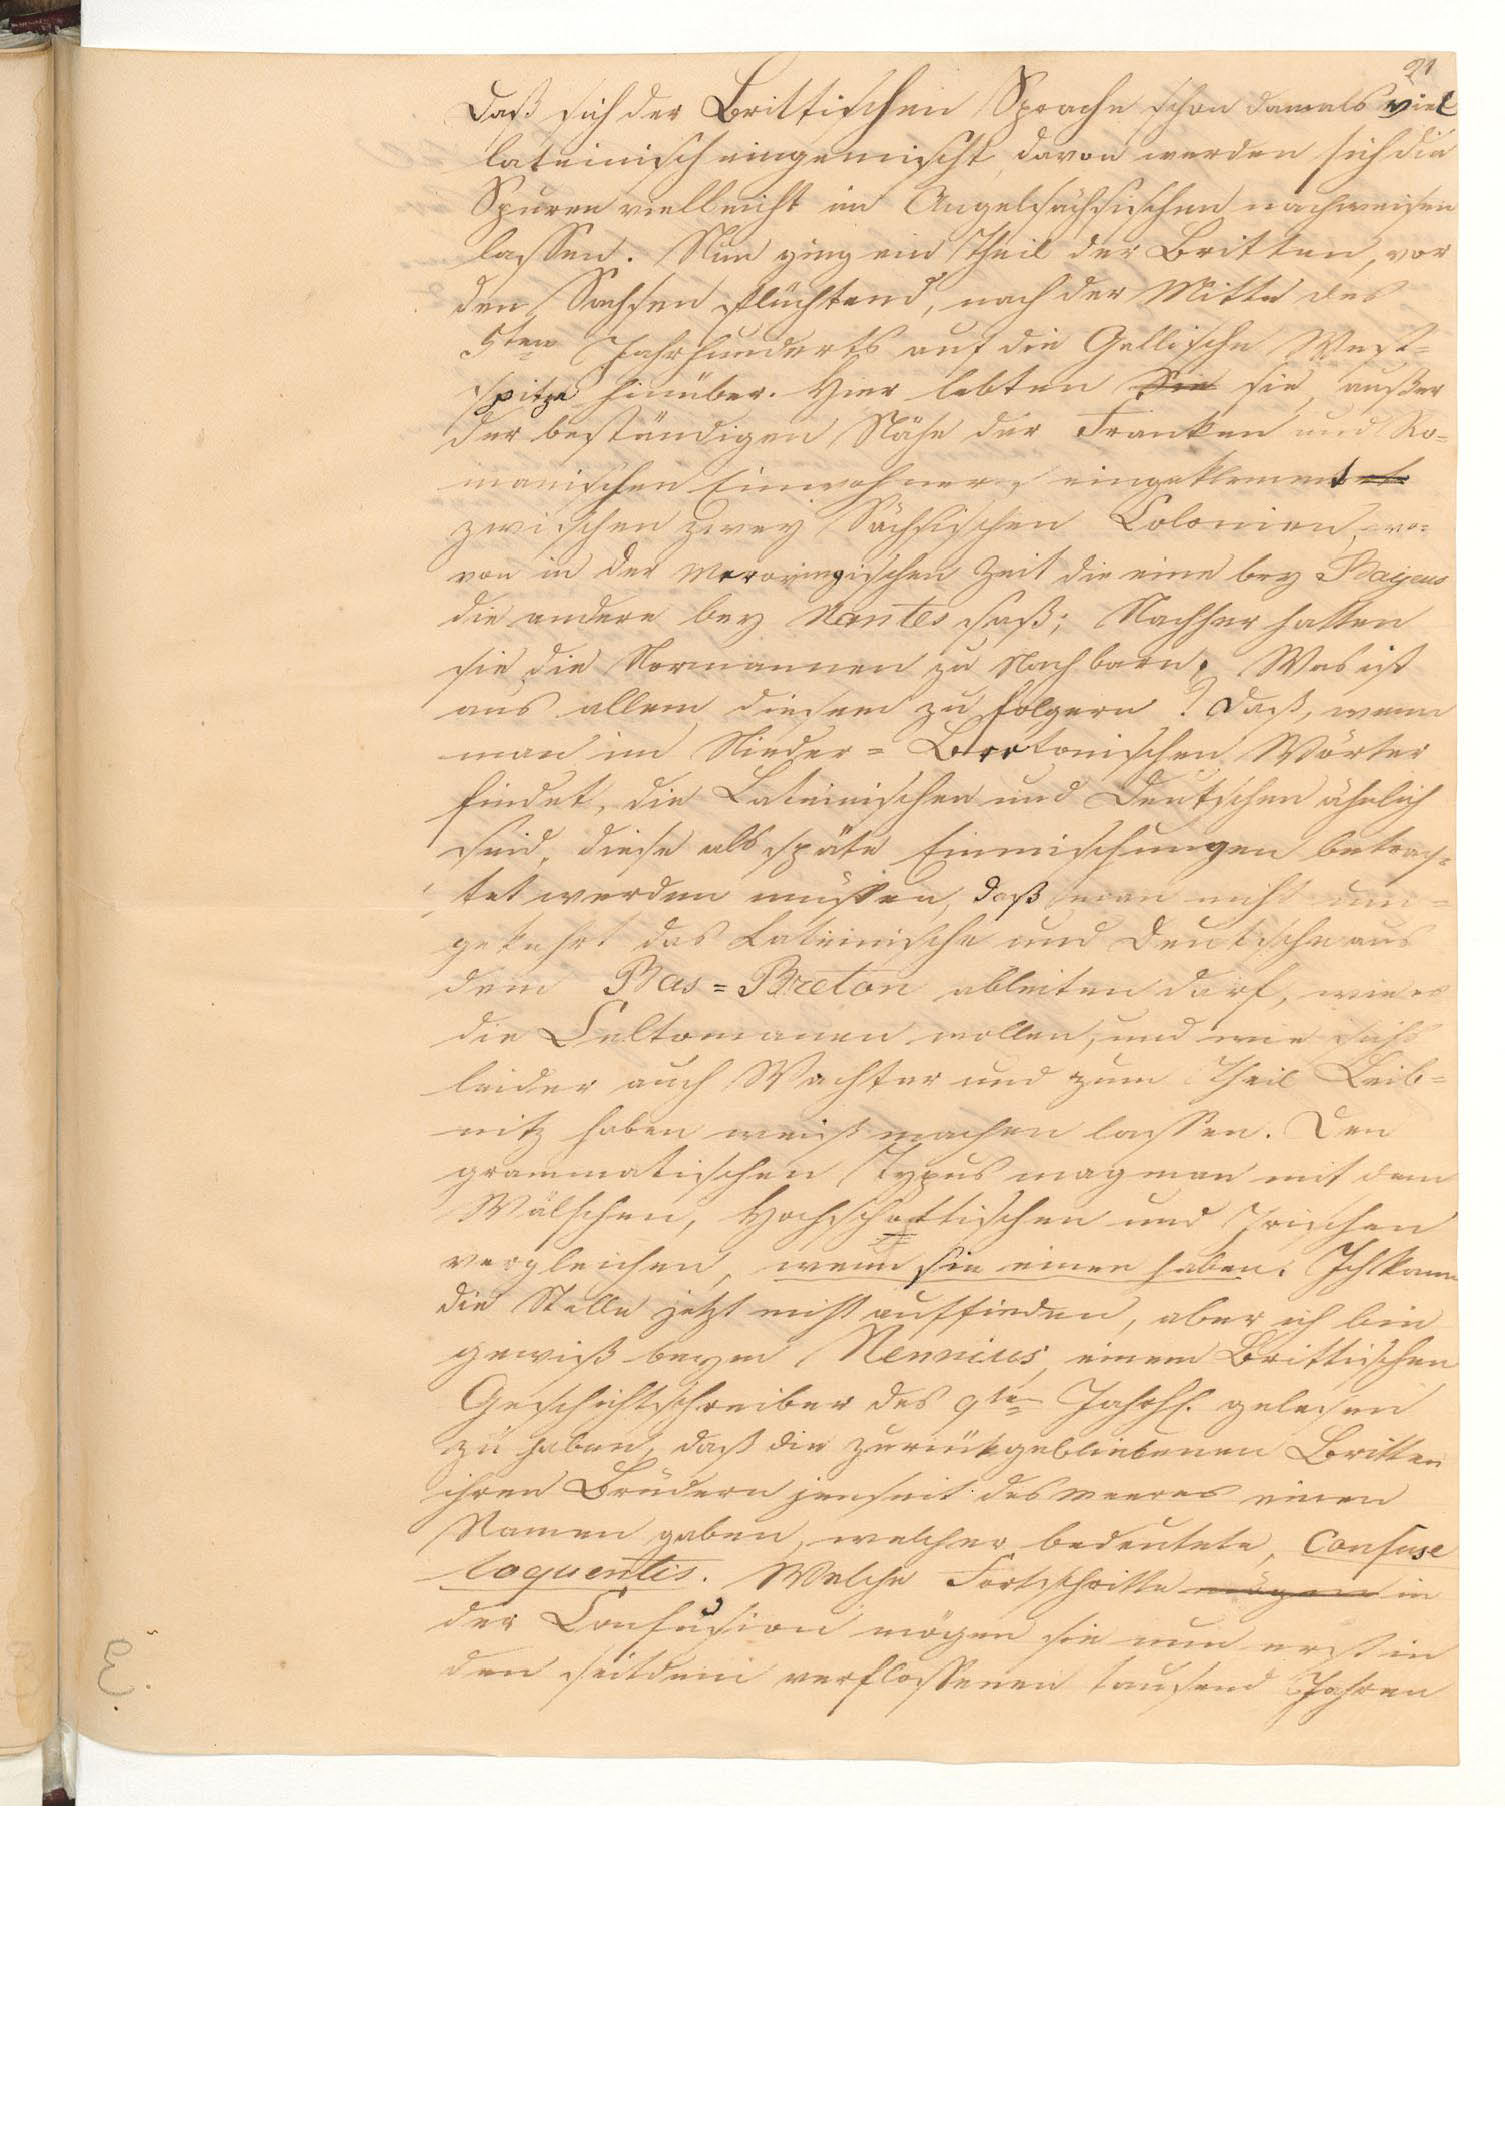 21
Daß sich der Brittischen Sprache schon damals viel
lateinisch eingemischt, davon werden sich die
Spuren vielleicht im Angelsächsischen nachweisen
lassen. Nun ging ein Theil der Britten, vor
den Sachsen flüchtend, nach der Mitte des
5ten Jahrhunderts auf die Gallische West=
spitze hinüber. Hier lebten Sie sie, außer
der beständigen Nähe der Franken und Ro=
manischen Einwohner, eingeklemmt
zwischen zwey Sächsischen Colonien, wo=
von in der Merovingischen Zeit die eine bey Bayeus
die andere bey Nantes saß; Nachher hatten
sie die Normannen zu Nachbarn. Was ist
aus allem diesem zu folgern? Daß, wenn
man im Nieder=Bretonischen Wörter
findet, die Lateinischen und Deutschen ähnlich
sind, diese als späte Einmischungen betrach=
tet werden müssen, daß man nicht um=
gekehrt das Lateinische und Deutsche aus
dem Bas=Breton ableiten darf, wie es
die Celtomanen wollen, und wie sichs
leider auch Wachter und zum Theil Leib=
nitz haben weiß machen lassen. Den
grammatischen Typus mag man mit dem
Wälschen, Hochschottischen und Irischen
vergleichen, wenn sie einen haben. Ich kann
die Stelle jetzt nicht auffinden, aber ich bin
gewiß beym Nennius, einem Brittischen
Geschichtschreiber des 9ten Jahrh. gelesen
zu haben, daß die zurückgebliebenen Britten
ihren Brüdern jenseit des Meeres einen
Namen gaben, welcher bedeutete, Confuse
loquentis. Welche Fortschritte mögen in
der Confusion mögen sie nun erst in
den seitdem verflossenen tausend Jahren
3.